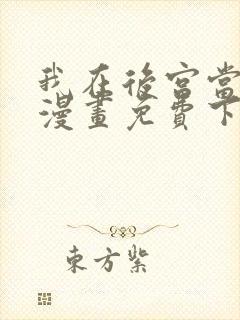 我在後宮當
漫畫免費下
東方紫